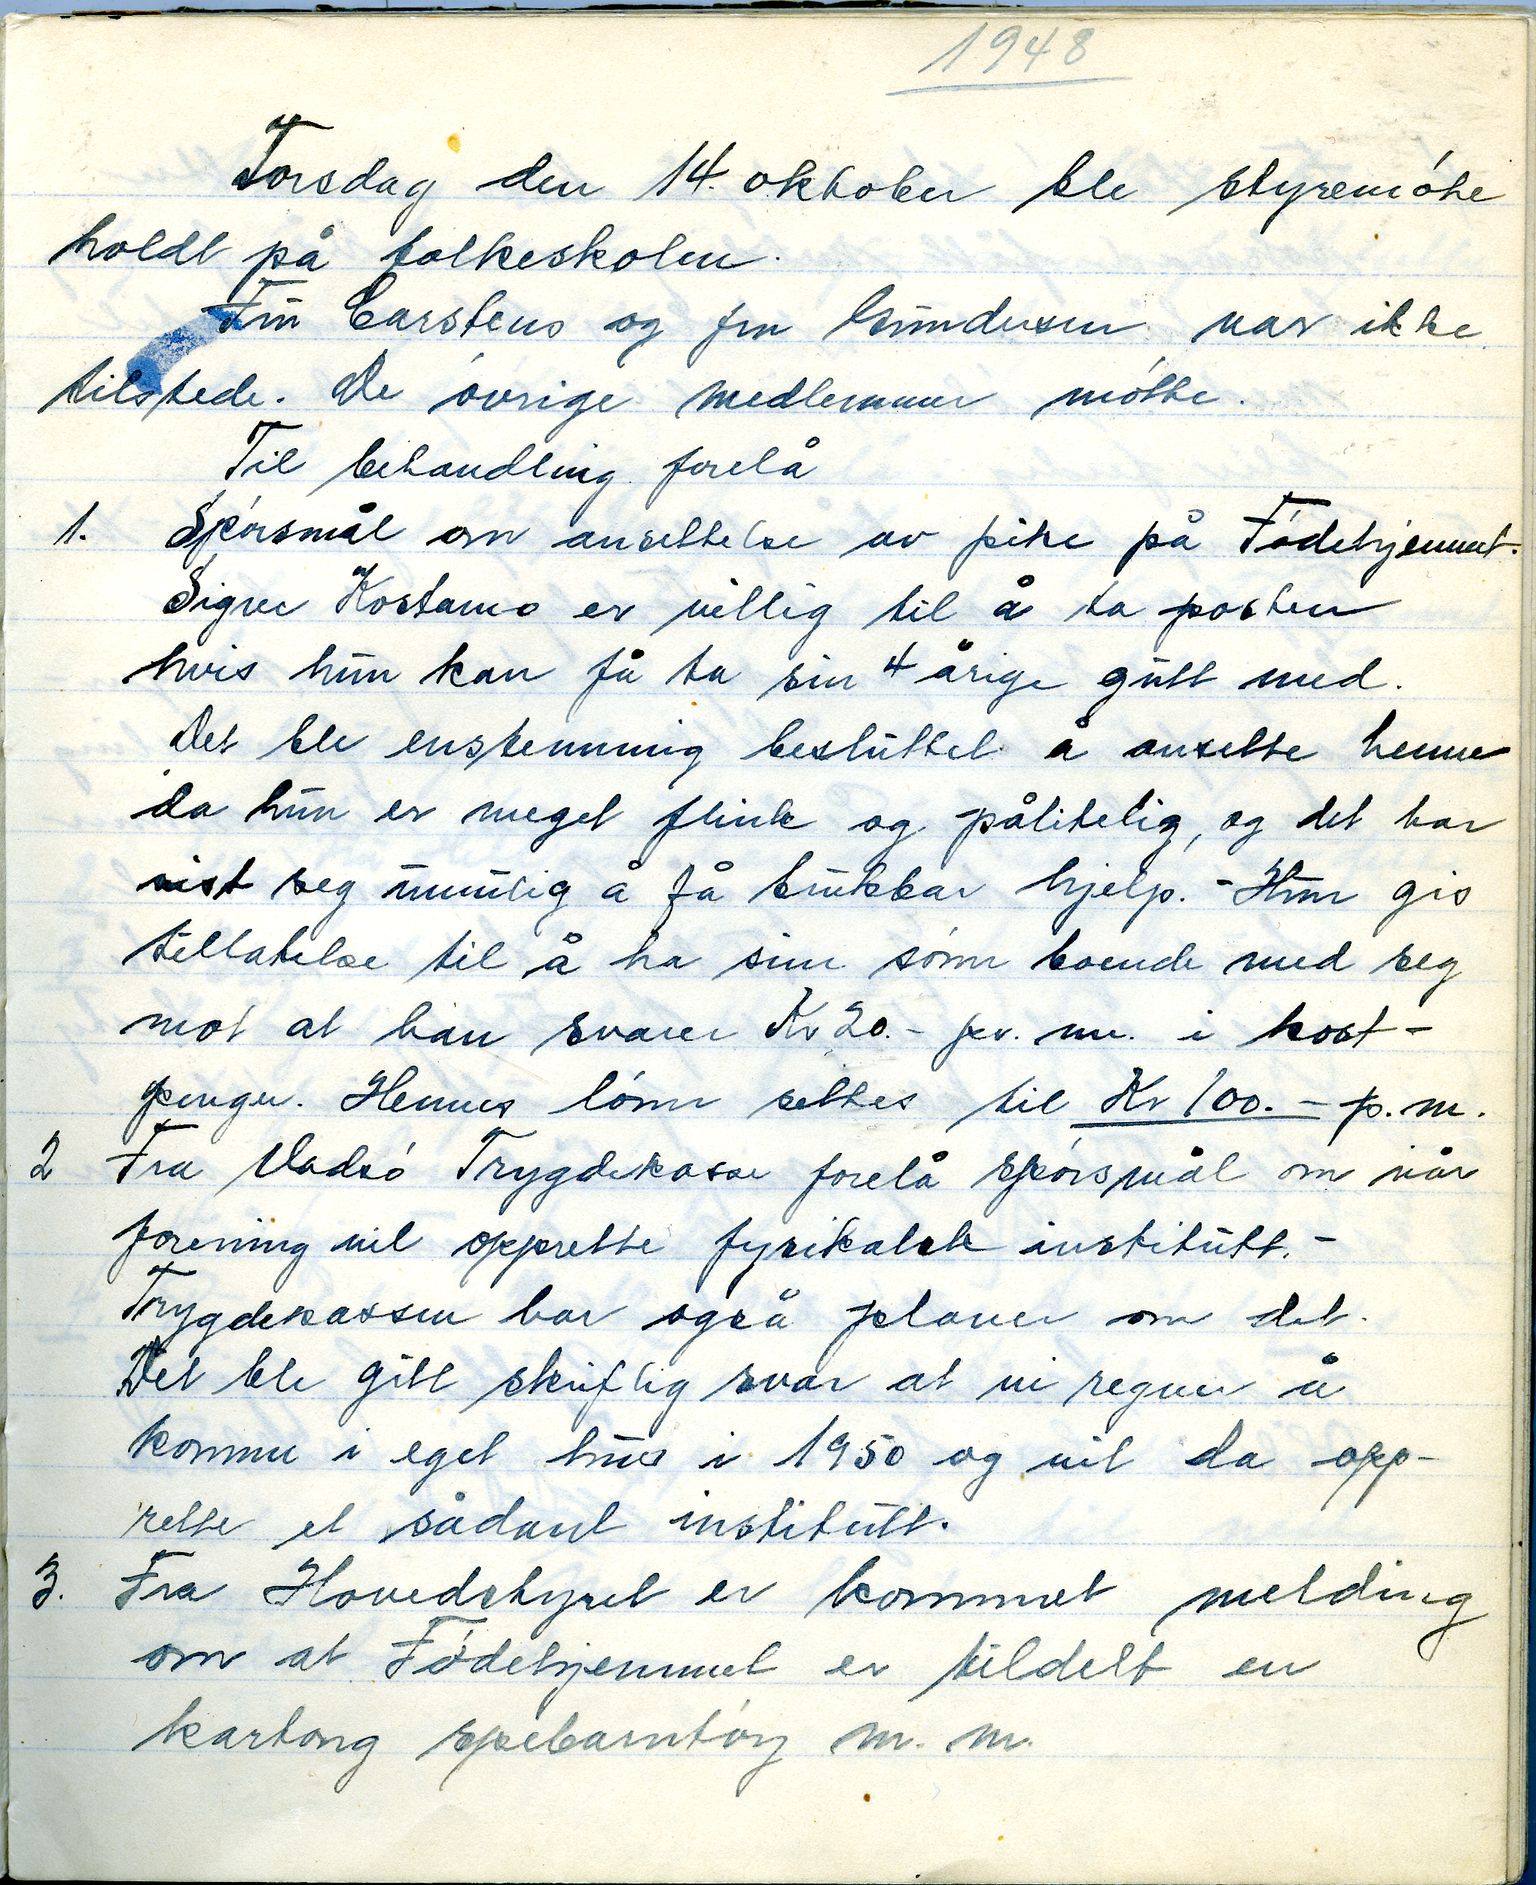 1948
Torsdag den 14. oktober ble styremóte
holdt på folkeskolen.
Fru Carstens og fru Gundersen var ikke
tilstede. De óvrige medlemmer mótte.
Til behandling forelå
1. Spórsmål om ansettelse av pike på Fódehjemmet.
Signe Kostamo er villig til å ta posten
hvis hun kan få ta sin 4 årige gutt med.
Det ble enstemmig besluttet å ansette henne
da hun er meget flink og pålitelig, og det har
vist seg umulig å få brukbar hjelp. - Hun gis
tillatelse til å ha sin sónn boende med seg
mot at han svarer Kr 20.- pr. m. i kost-
penger. Hennes lónn settes til Kr 100.- p.m.
2 Fra Vadsó Trygdekasse forelå spórsmål om vår
forening vil opprette fysikalsk institutt. -
Trygdekassen har også planer om det.
Det ble gitt skriftlig svar at vi regner å
komme i eget hus i 1950 og vil da opp-
rette et sådant institutt.
3. Fra Hovedstyret er kommet melding
om at Fódehjemmet er tildelt en
kartong spebarntóy m.m.